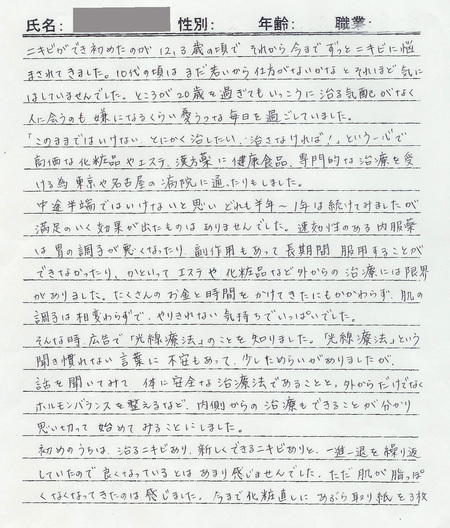 氏名: 性別: 年齢: 職業:
ニキビができ初めたのが12,3歳の頃で それから今までずっとニキビに悩
まされてきました。10代の頃は まだ若いから仕方がないかな とそれほど気に
はしていませんでした。ところが20歳を過ぎてもいっこうに治る気配がなく
人に会うのも 嫌になるくらい憂うつな毎日を過ごしていました。
「このままではいけない、とにかく治したい、治さなければ!」という一心で
高価な化粧品やエステ、漢方薬に健康食品、専門的な治療を受
ける為 東京や名古屋の病院に通ったりもしました。
中途半端ではいけないと思い どれも半年〜1年は続けてみましたが
満足のいく効果が出たものは ありませんでした。速効性のある内服薬
は胃の調子が悪くなったり、副作用もあって長期間 服用することが
できなかったり、かといって エステや 化粧品など外からの 治療には限界
がありました。たくさんのお金と時間を かけてきたにもかかわらず、肌の
調子は相変わらずで、やりきれない気持ちでいっぱいでした。
そんな時、広告で「光線療法」のことを 知りました。「光線療法」という
聞き慣れない 言葉に 不安もあって、少しためらいがありましたが、
話を聞いてみて 体に安全な治療法であることと、外からだけでなく
ホルモンバランスを整えるなど、内側からの 治療もできることが分かり
思い切って 始めてみることにしました。
初めのうちは、治るニキビあり、新しくできるニキビありと、一進一退を繰り返
していたので良くなっているとは あまり感じませんでした。ただ 肌が脂っぽ
くなくなってきたのは感じました。今まで化粧直しに あぶら取り紙を3枚